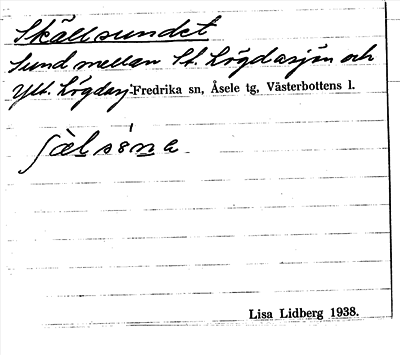 Skällsundet
Sund mellan St. Lögdasjön och
Ytt. Lögdasj. Fredrika sn, Åsele tg, Västerbottens l.
Lisa Lidberg 1938.